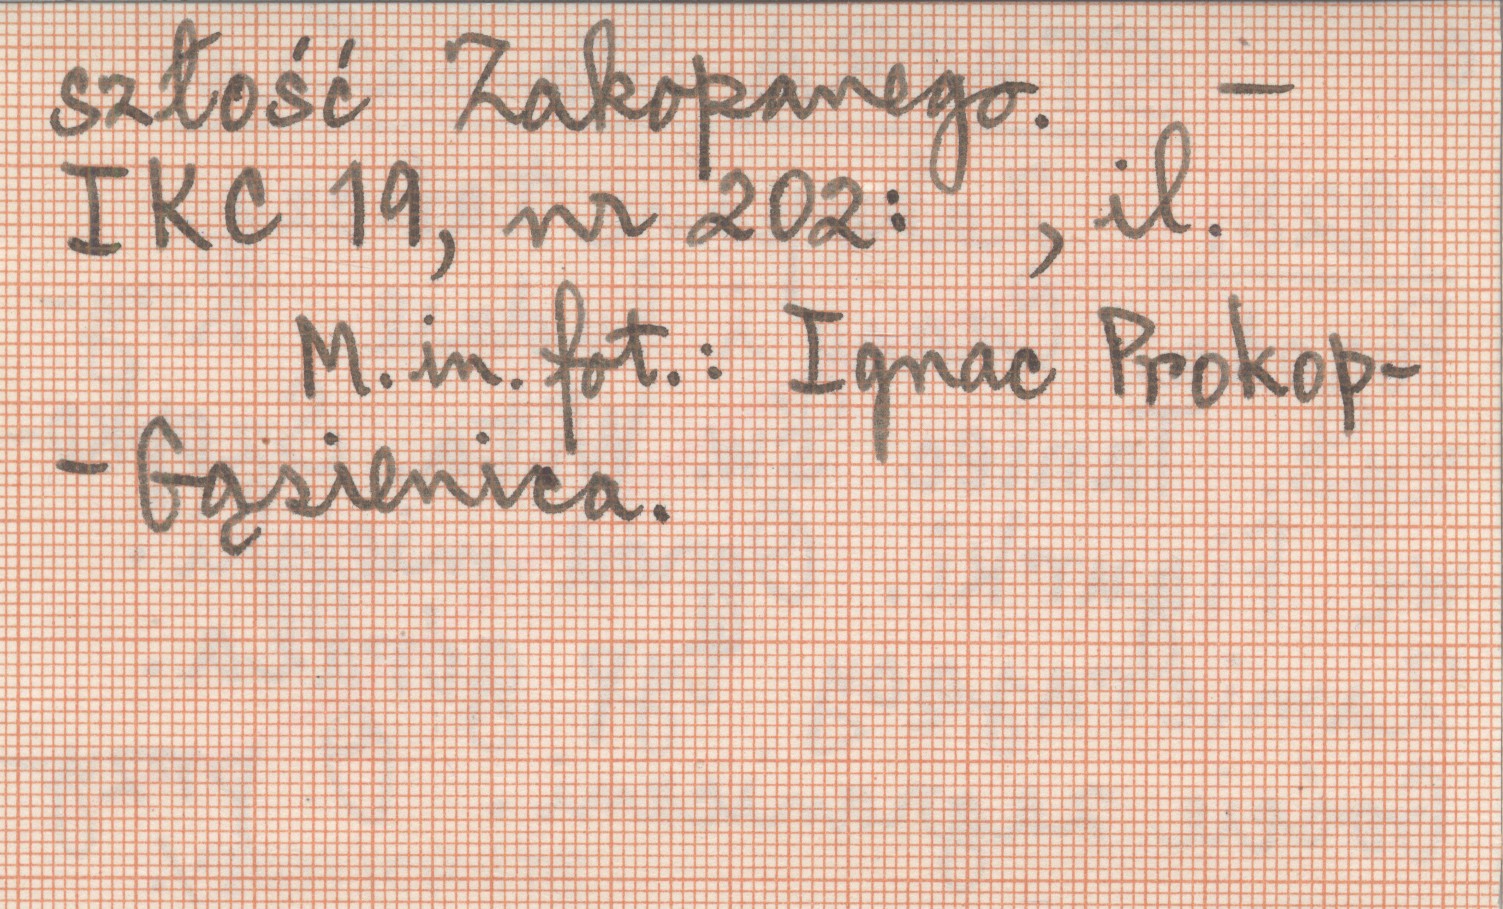 szłość Zakopanego. –
IKC 19, nr 202: , il.
M. in. fot.: Ignac Prokop-
-Gąsienica.